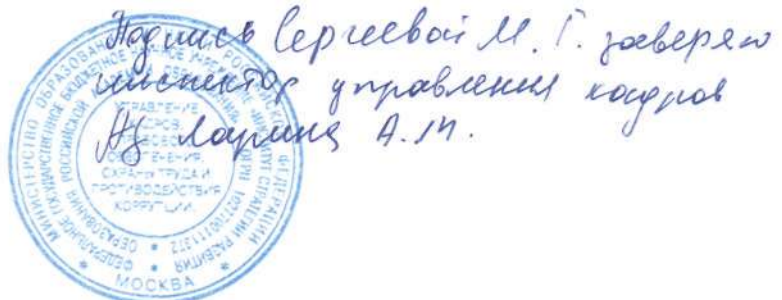 Подпись Сергеевой М. Г. заверяю
инспектор управления кадров
Ларина А.М.
МИНИСТЕРСТВО ОБРАЗОВАНИЯ РОССИЙСКОЙ ФЕДЕРАЦИИ
ФЕДЕРАЛЬНОЕ ГОСУДАРСТВЕННОЕ БЮДЖЕТНОЕ УЧРЕЖДЕНИЕ ИНСТИТУТ СТРАТЕГИИ РАЗВИТИЯ ОБРАЗОВАНИЯ
УПРАВЛЕНИЕ
КАДРОВ
ОБЕСПЕЧЕНИЯ,
ОХРАНЫ ТРУДА И
ПРОТИВОДЕЙСТВИЯ
КОРРУПЦИИ
МОСКВА